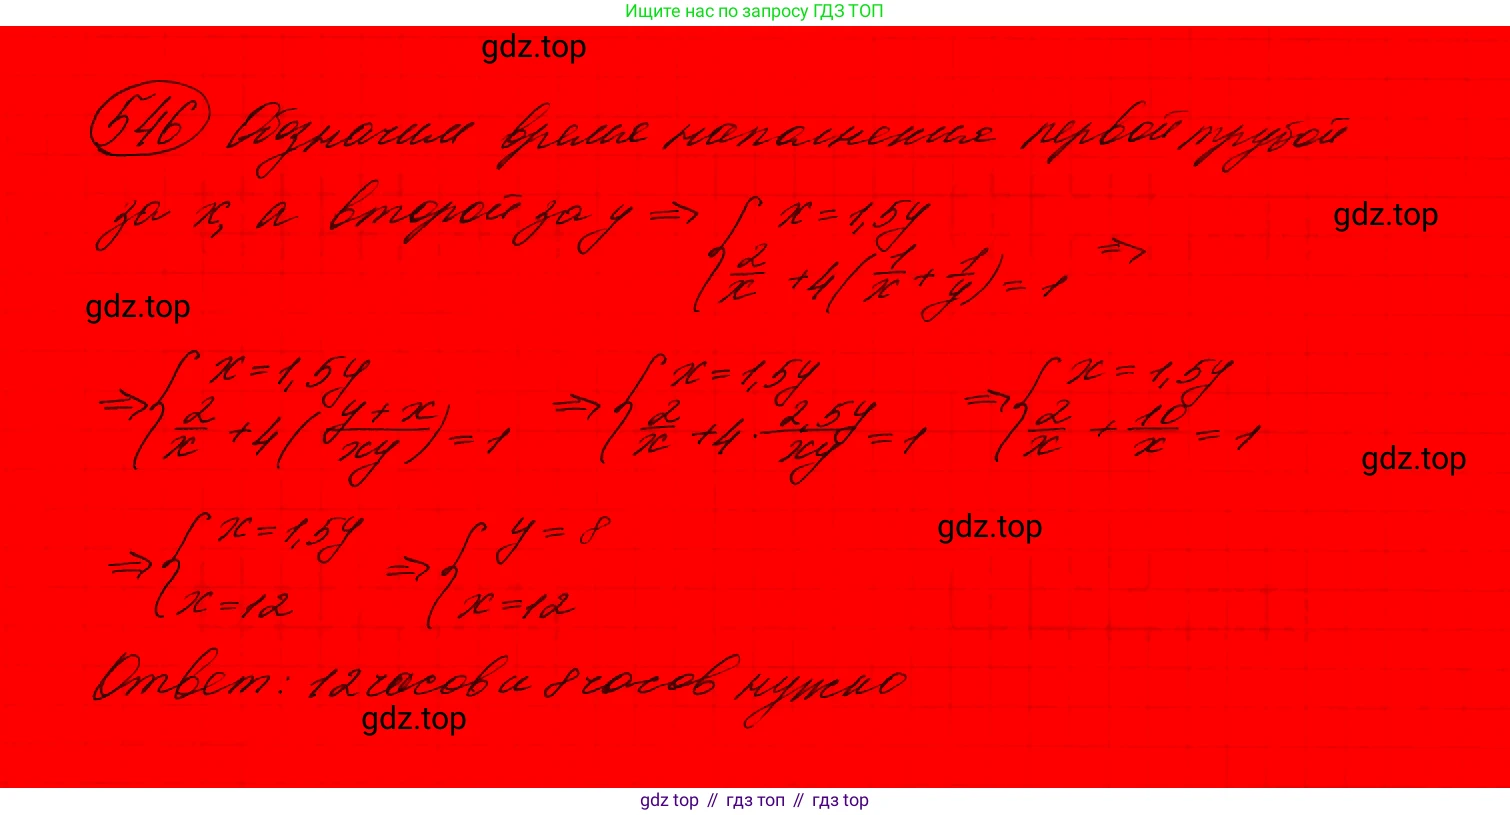 Ищите нас по запросу ГДЗ ТОП
gdz.top
546 Обозначим время наполнения первой трубой
за x, а второй за y ⇒ { x = 1,5y
gdz.top
2/x + 4(1/x + 1/y) = 1 ⇒
gdz.top
⇒ { x = 1,5y ⇒ { x = 1,5y ⇒ { x = 1,5y
2/x + 4((y + x)/xy) = 1 2/x + 4 · 2,5y/xy = 1 2/x + 10/x = 1
gdz.top
gdz.top
⇒ { x = 1,5y ⇒ { y = 8
x = 12 x = 12
Ответ: 12 часов и 8 часов нужно
gdz.top
gdz top // гдз топ // гдз top